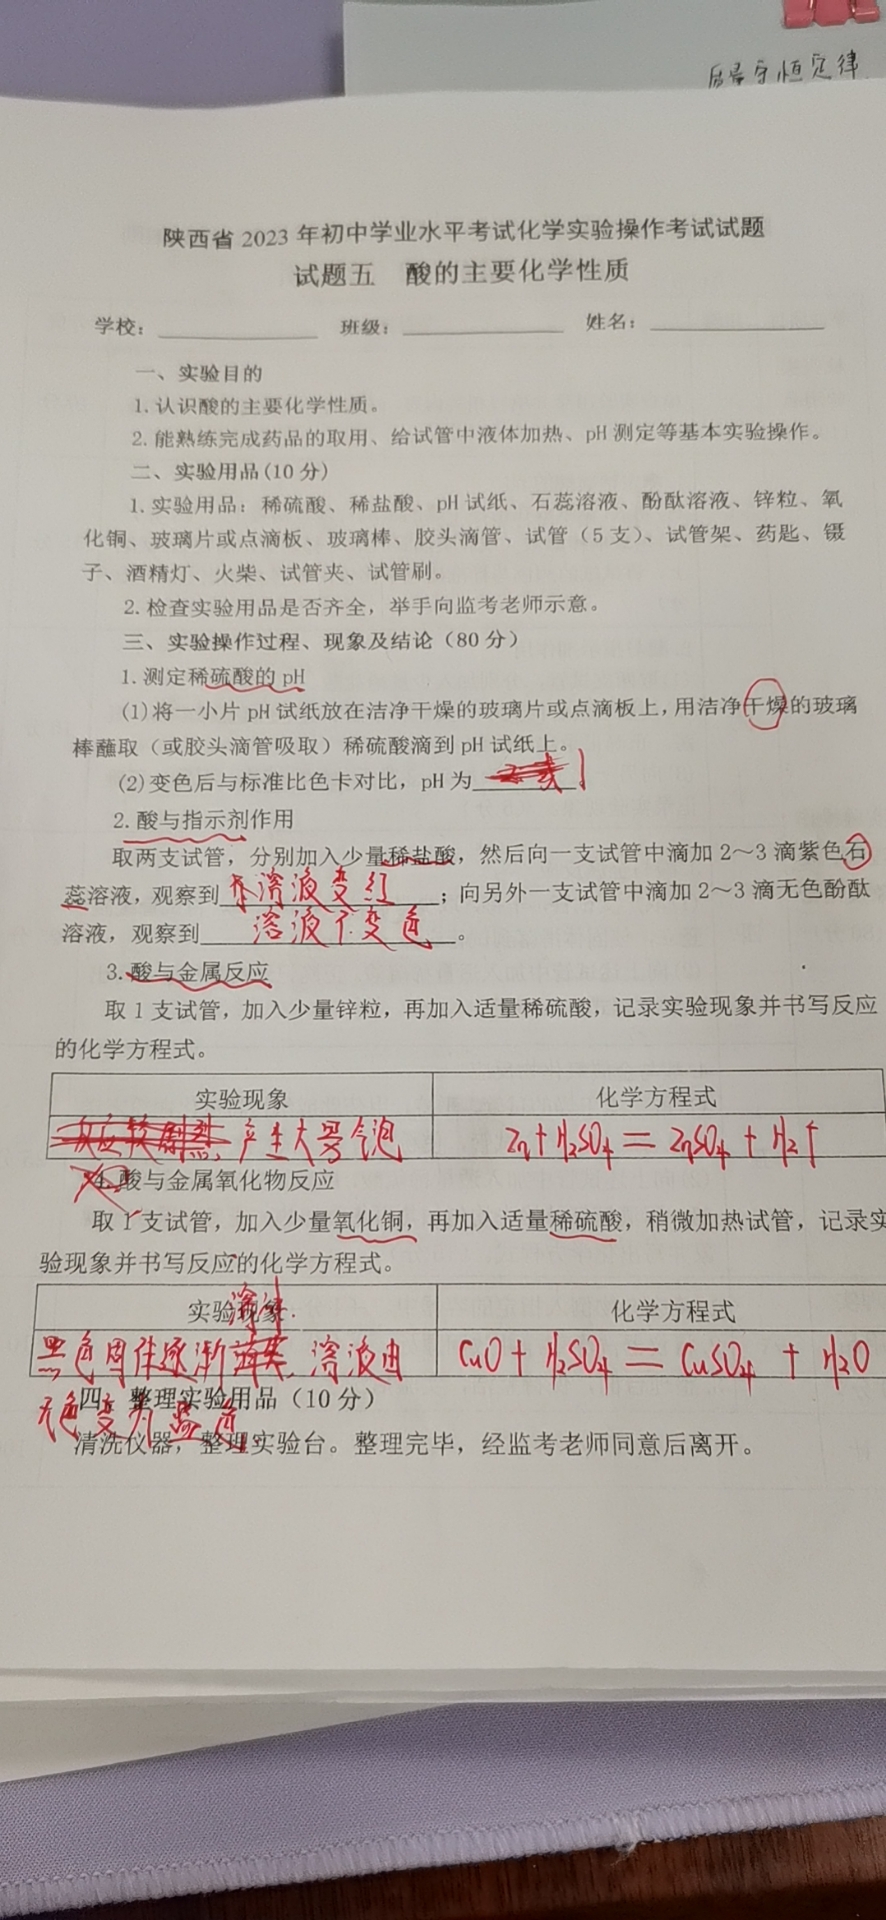 质量守恒定律
陕西省2023年初中学业水平考试化学实验操作考试试题
试题五 酸的主要化学性质
学校： 班级： 姓名：
一、实验目的
1.认识酸的主要化学性质。
2.能熟练完成药品的取用、给试管中液体加热、pH测定等基本实验操作。
二、实验用品(10分)
1.实验用品：稀硫酸、稀盐酸、pH试纸、石蕊溶液、酚酞溶液、锌粒、氧
化铜、玻璃片或点滴板、玻璃棒、胶头滴管、试管（5支）、试管架、药匙、镊
子、酒精灯、火柴、试管夹、试管刷。
2.检查实验用品是否齐全，举手向监考老师示意。
三、实验操作过程、现象及结论（80分）
1.测定稀硫酸的pH
(1)将一小片pH试纸放在洁净干燥的玻璃片或点滴板上，用洁净干燥的玻璃
棒蘸取（或胶头滴管吸取）稀硫酸滴到pH试纸上。
(2)变色后与标准比色卡对比，pH为 1
2.酸与指示剂作用
取两支试管，分别加入少量稀盐酸，然后向一支试管中滴加2～3滴紫色石
蕊溶液，观察到 溶液变红 ；向另外一支试管中滴加2～3滴无色酚酞
溶液，观察到 溶液不变色 。
3.酸与金属反应
取1支试管，加入少量锌粒，再加入适量稀硫酸，记录实验现象并书写反应
的化学方程式。
实验现象 化学方程式
反应较剧烈 产生大量气泡 Zn+H₂SO₄=ZnSO₄+H₂↑
4.酸与金属氧化物反应
取1支试管，加入少量氧化铜，再加入适量稀硫酸，稍微加热试管，记录实
验现象并书写反应的化学方程式。
实验现象 化学方程式
黑色固体逐渐溶解，溶液由 CuO+H₂SO₄=CuSO₄+H₂O
无色变为蓝色
四、整理实验用品（10分）
清洗仪器，整理实验台。整理完毕，经监考老师同意后离开。